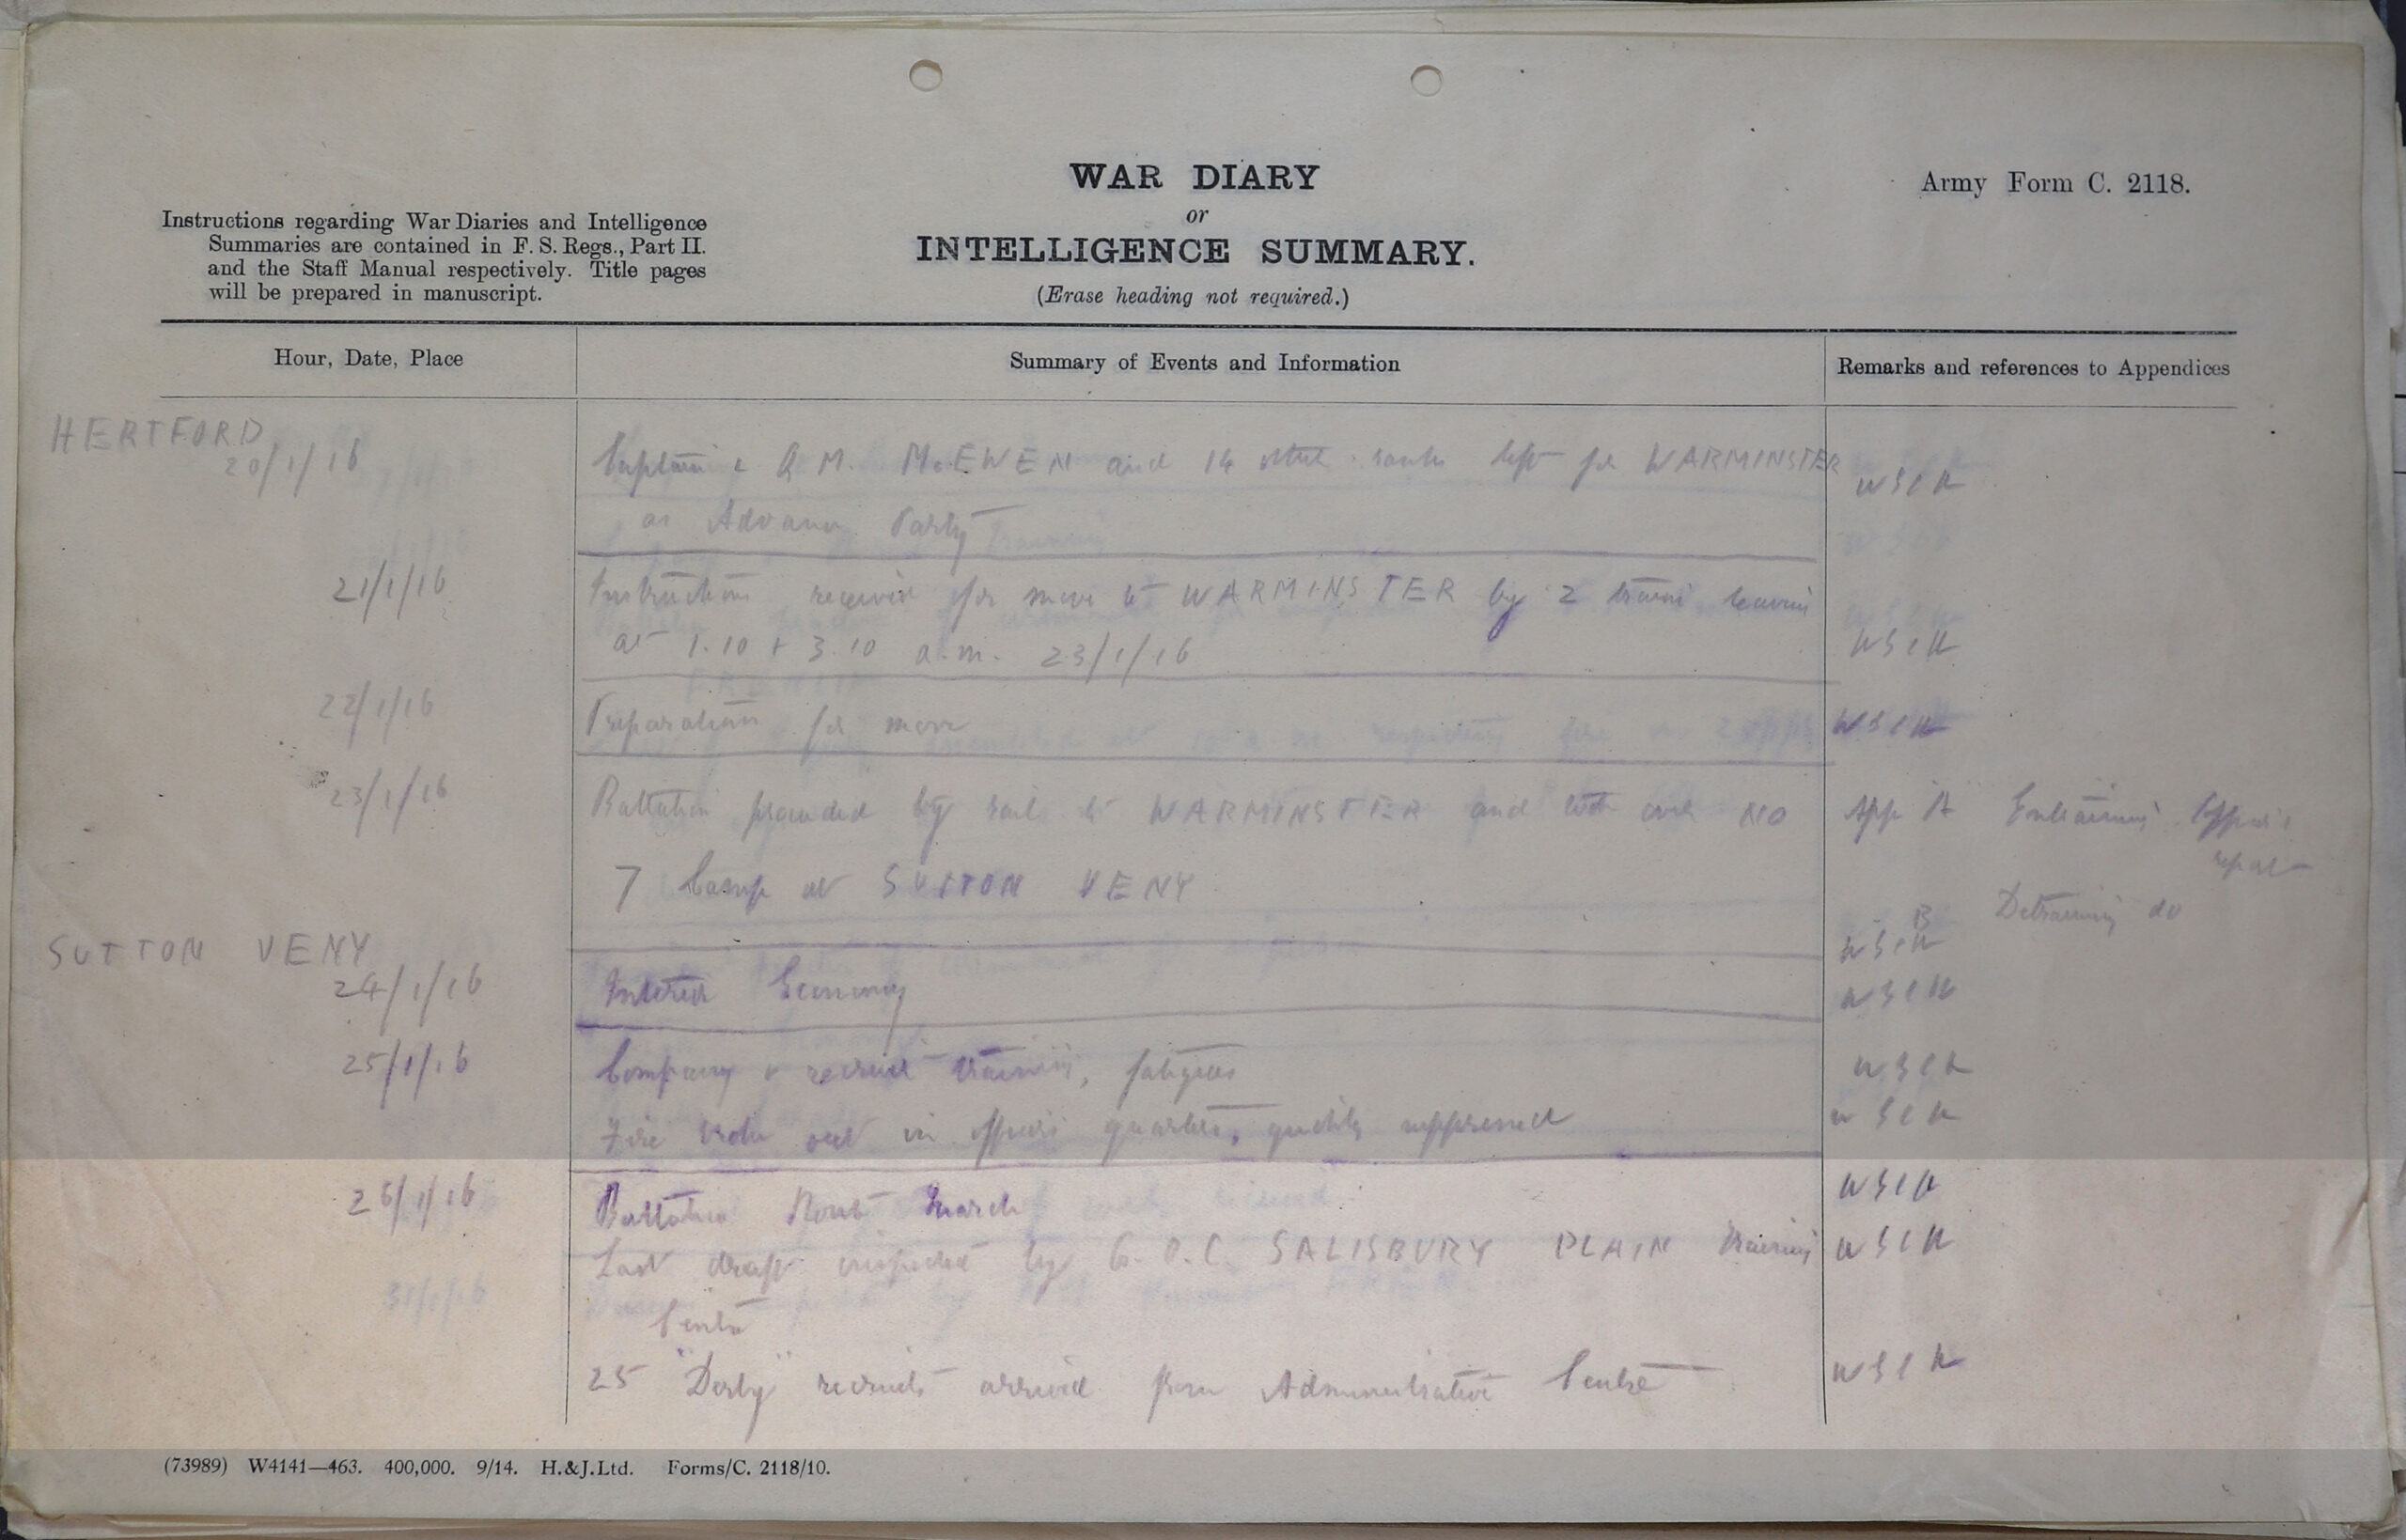 WAR DIARY
or
INTELLIGENCE SUMMARY.
(Erase heading not required.)
Army Form C. 2118.
Instructions regarding War Diaries and Intelligence
Summaries are contained in F. S. Regs., Part II.
and the Staff Manual respectively. Title pages
will be prepared in manuscript.
Hour, Date, Place
Summary of Events and Information
Remarks and references to Appendices
HERTFORD
20/1/16
Captain & Q M. McEWEN and 14 other ranks left for WARMINSTER
as Advance Party
21/1/16
Instructions received for move to WARMINSTER by 2 trains leaving
at 1.10 + 3.10 a.m. 23/1/16
22/1/16
Preparation for move
23/1/16
Battalion proceeded by rail to WARMINSTER and took over No
7 Camp at SUTTON VENY
App A Entraining Officer's
report
B Detraining do
SUTTON VENY
24/1/16
Interior Economy
25/1/16
Company & recruit training, fatigues
Fire broke out in officers quarters, quickly suppressed
26/1/16
Battalion Route March
Last draft inspected by G.O.C. SALISBURY PLAIN Training
Centre
25 "Derby" recruits arrived from Administrative Centre
(73989) W4141—463. 400,000. 9/14. H.&J.Ltd. Forms/C. 2118/10.